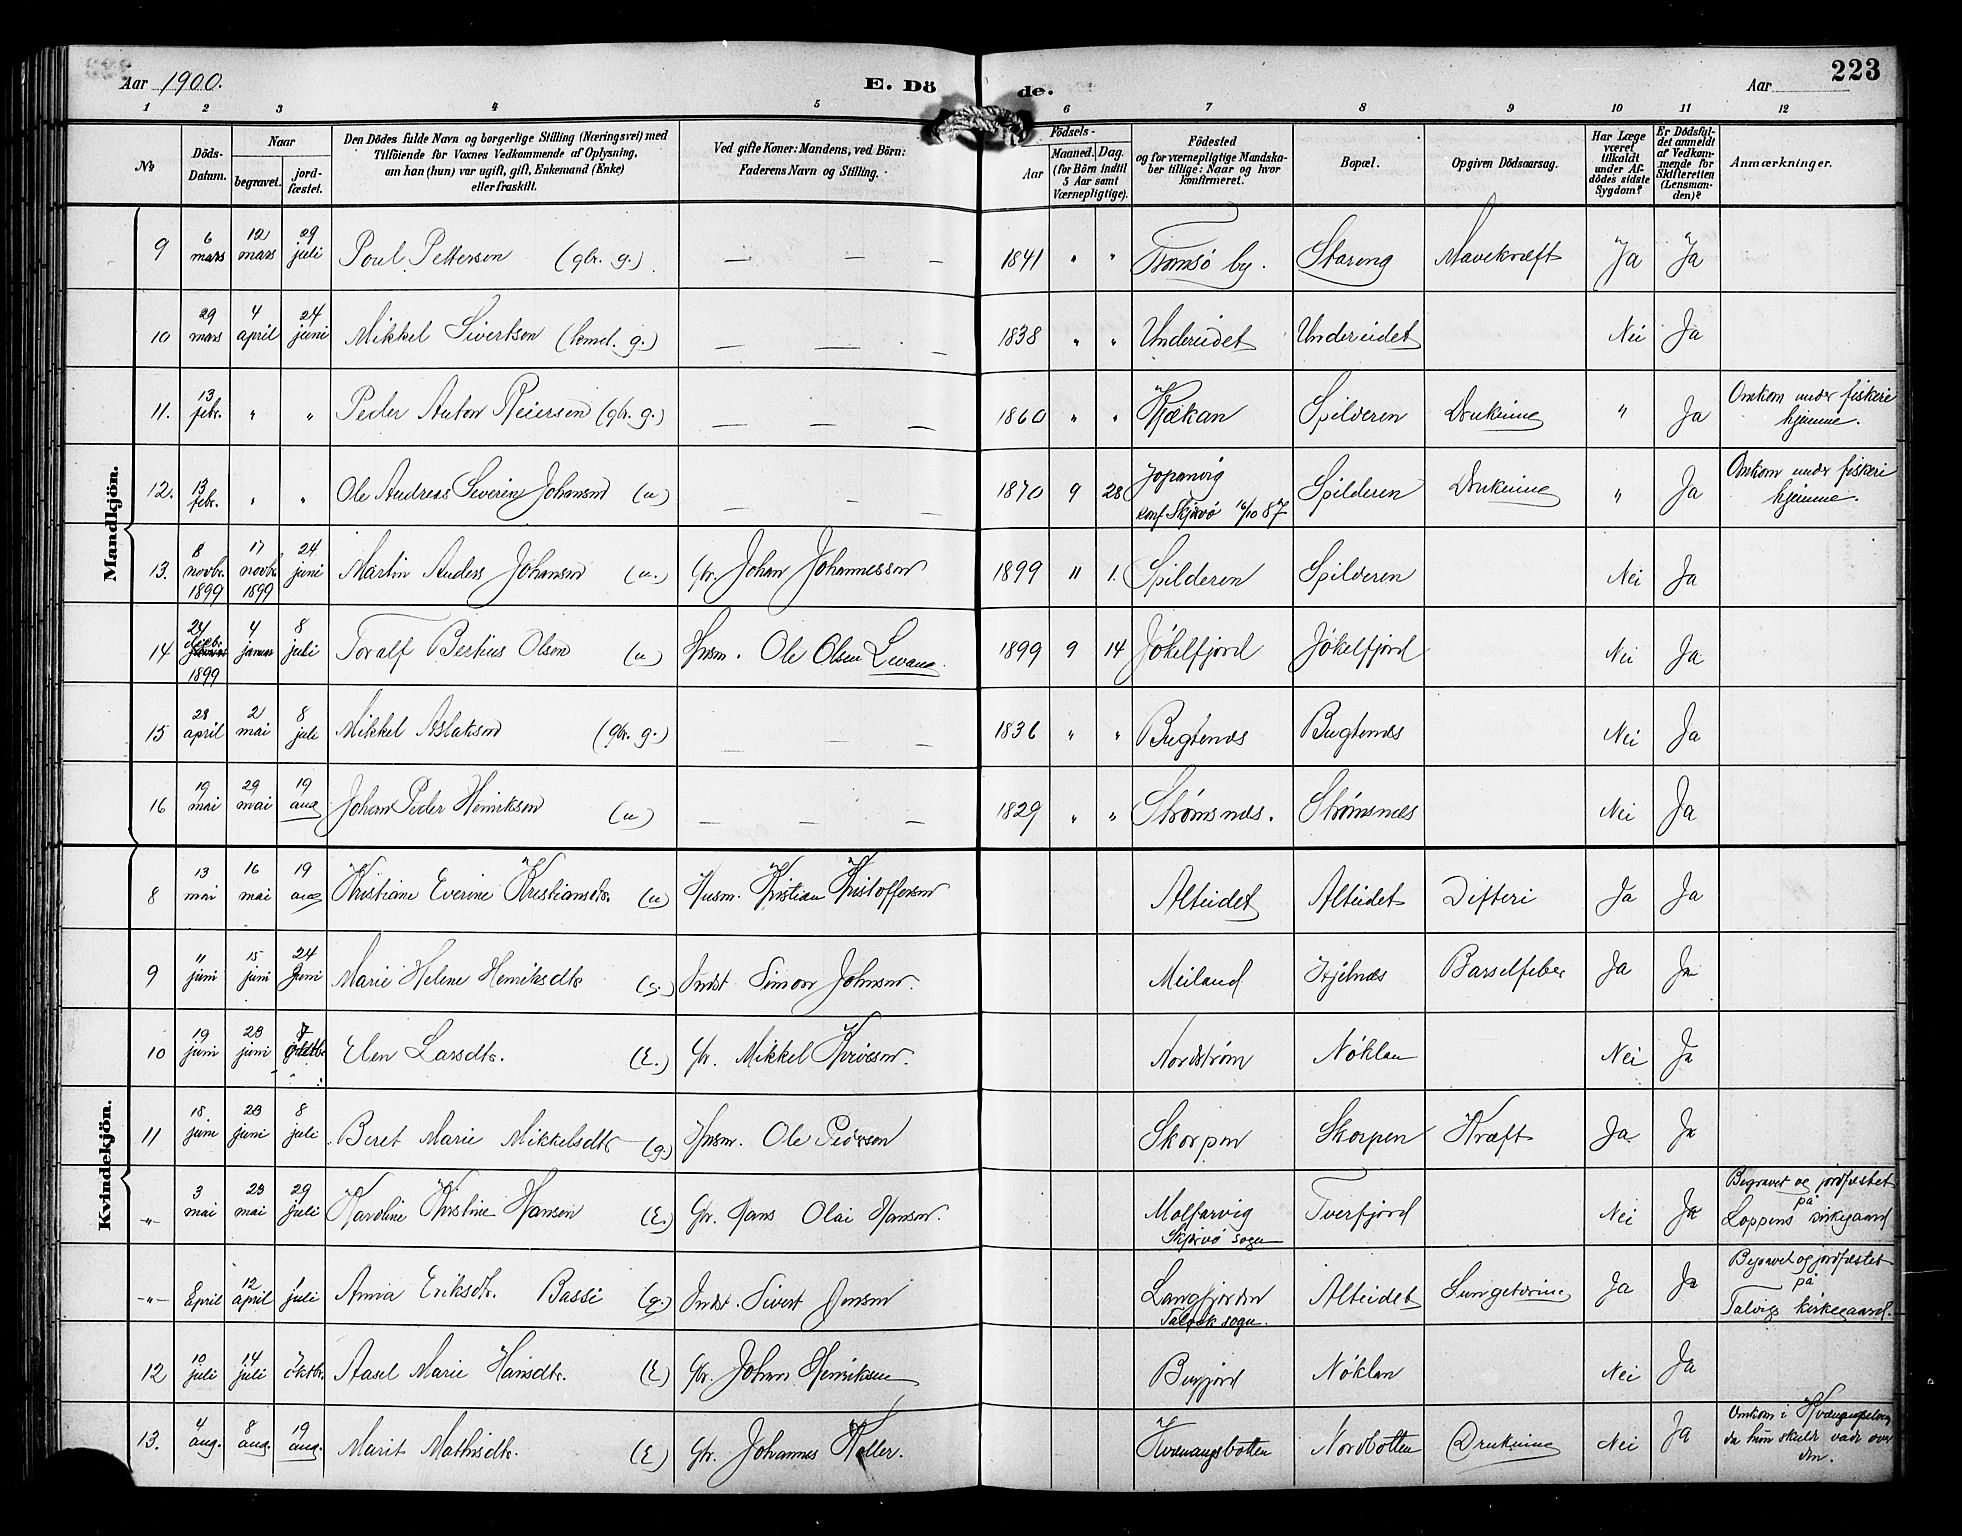 Aar 1900.
E. Dö
de.
Aar
223
1 2 3 4 5 6 7 8 9 10 11 12
No.
Döds-Datum.
Naar
begravet.
jord-fæstet.
Den Dödes fulde Navn og borgerlige Stilling (Næringsvei) med
Tilföiende for Voxnes Vedkommende af Oplysning,
om han (hun) var ugift, gift, Enkemand (Enke)
eller fraskilt.
Ved gifte Koner: Mandens, ved Börn:
Faderens Navn og Stilling.
Födsels-
Aar
Maaned. Dag.
(for Börn indtil
5 Aar samt
Værnepligtige).
Födested
og for værnepligtige Mandska-
ber tillige: Naar og hvor
konfirmeret.
Bopæl.
Opgiven Dödsaarsag.
Har Læge
været
tilkaldt
under Af-
dödes sidste
Sygdom?
Er Dödsfal-
det anmeldt
af Vedkom-
mende for
Skifteretten
(Lensman-
den)?
Anmærkninger.
Mandkjön.
9 6 mars 12 mars 29 juli Poul Petterson (gbr. g.) — — — 1841 " " Tromsö by. Stareng Mavekræft Ja Ja
10 29 mars 4 april 24 juni Mikkel Sivertson (g.) — — — 1838 " " Undereidet Undereidet Nei Ja
11. 13 febr. " " Peder Anton Reiersen (gbr. g.) — — — 1860 " " Kjækan Spilderen Drukning " Ja Omkom under fiskeri hjemme.
12. 13 febr. " " Ole Andreas Severin Johansen (u) — 1870 9 28 Jopanvig konf. Skjervö 16/10 87 Spilderen Drukning " Ja Omkom under fiskeri hjemme.
13. 8 novbr. 1899 17 novbr. 1899 24 juni Martin Anders Johansen (u.) Gbr. Johan Johannesson 1899 11 1. Spilderen Spilderen Nei Ja
14 24 decbr. 1899 4 januar 8 juli Toralf Bertius Olsen (u) Husm. Ole Olsen 1899 9 14 Jökelfjord Jökelfjord Nei Ja
15 28 april 2 mai 8 juli Mikkel Aslaksen (Gbr. g.) — — — 1836 " " Bugtenæs Bugtenæs Nei Ja
16 19 mai 29 mai 19 aug Johan Peder Henriksen (u) — — — 1829 " " Strömsnæs. Strömsnæs Nei Ja
Kvindekjön.
8 13 mai 16 mai 19 aug Kristiane Everine Kristiansdtr. (u) Husm. Kristian Kristofferson Alteidet Alteidet Difteri Ja Ja
9 11 juni 15 juni 24 juni Marie Helene Henriksdtr (g.) Indst. Simon Johnsen. Meiland Barselfeber Ja Ja
10 19 juni 23 juni 7 oktbr. Elen Larsdtr. (E.) Gbr. Mikkel Nordström Nöklan Nei Ja
11 18 juni 23 juni 8 juli Beret Marie Mikkelsdtr (g.) Husm. Ole Skorpen Skorpen Kræft Ja Ja
-"- 3 mai 23 mai 29 juli Karoline Kirstine Hansen (E.) Gbr. Hans Olai Hansen. Molfarvig Skjervö sogn Tverfjord Nei Ja Begravet og jordfæstet på Loppens kirkegaard
-"- April 12 april 1 juli Anna Eriksdtr. Basse (g.) Indst. Sivert Jensen Langfjorden Talvik sogn. Alteidet Lungetæring Ja Ja Begravet og jordfæstet på Talvigs kirkegaard.
12 10 juli 14 juli 7 oktbr. Aasel Marie Hansdtr. (E) Gbr. Johan Henriksen Burfjord Nöklan Nei Ja
13. 4 aug. 8 aug. 19 aug. Marit Mathisdtr. (E) Gbr. Johannes Koller. Kvænangsbotten Nordbotten Drukning Nei Ja Omkom i Kvænangselven da hun skulde vade over den.